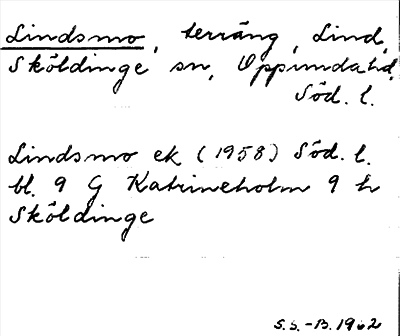 Lindsmo, terräng, Lind,
Sköldinge sn, Oppundahd,
Söd. l.
Lindsmo ek (1958) Söd. l.
bl. 9 G Katrineholm 9 h
Sköldinge
S.S.-B. 1962